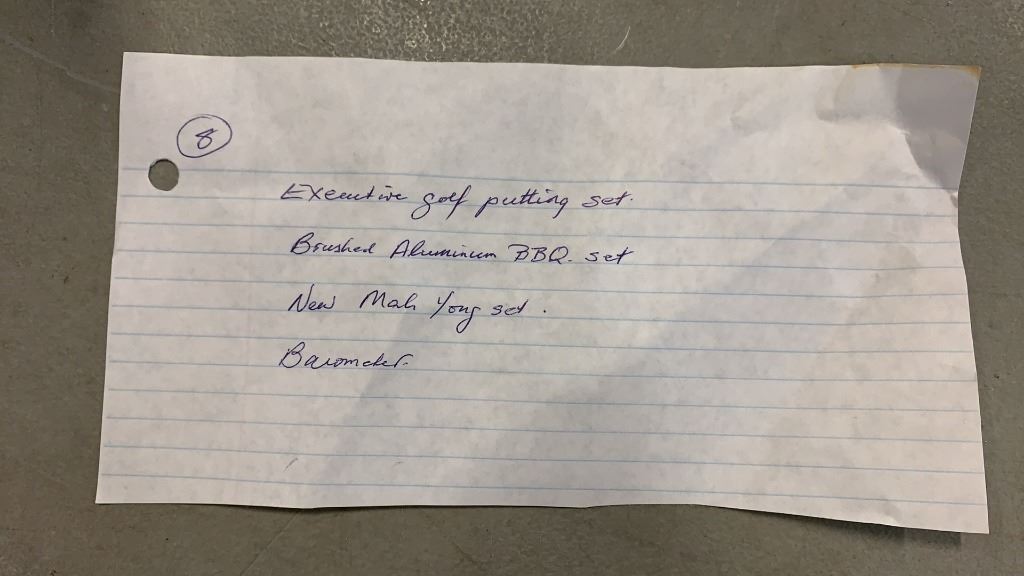 8
Executive golf putting set.
Brushed Aluminium BBQ. set
New Mah Yong set.
Barometer.